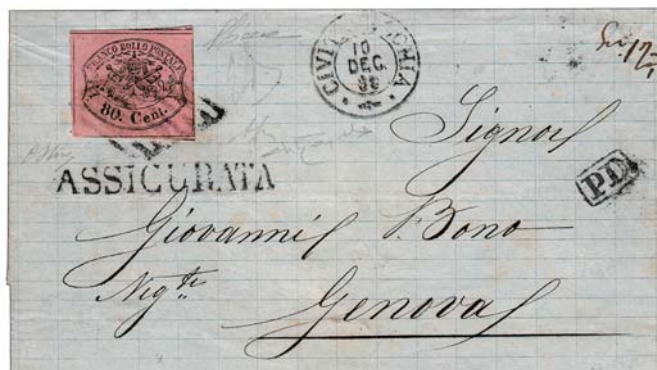 FRANCO BOLLO POSTALE
80. Cent.
CIVITAVECCHIA
10
DEC.
ASSICURATA
P.D.
Signor
Giovanni Bono
Neg.te
Genova